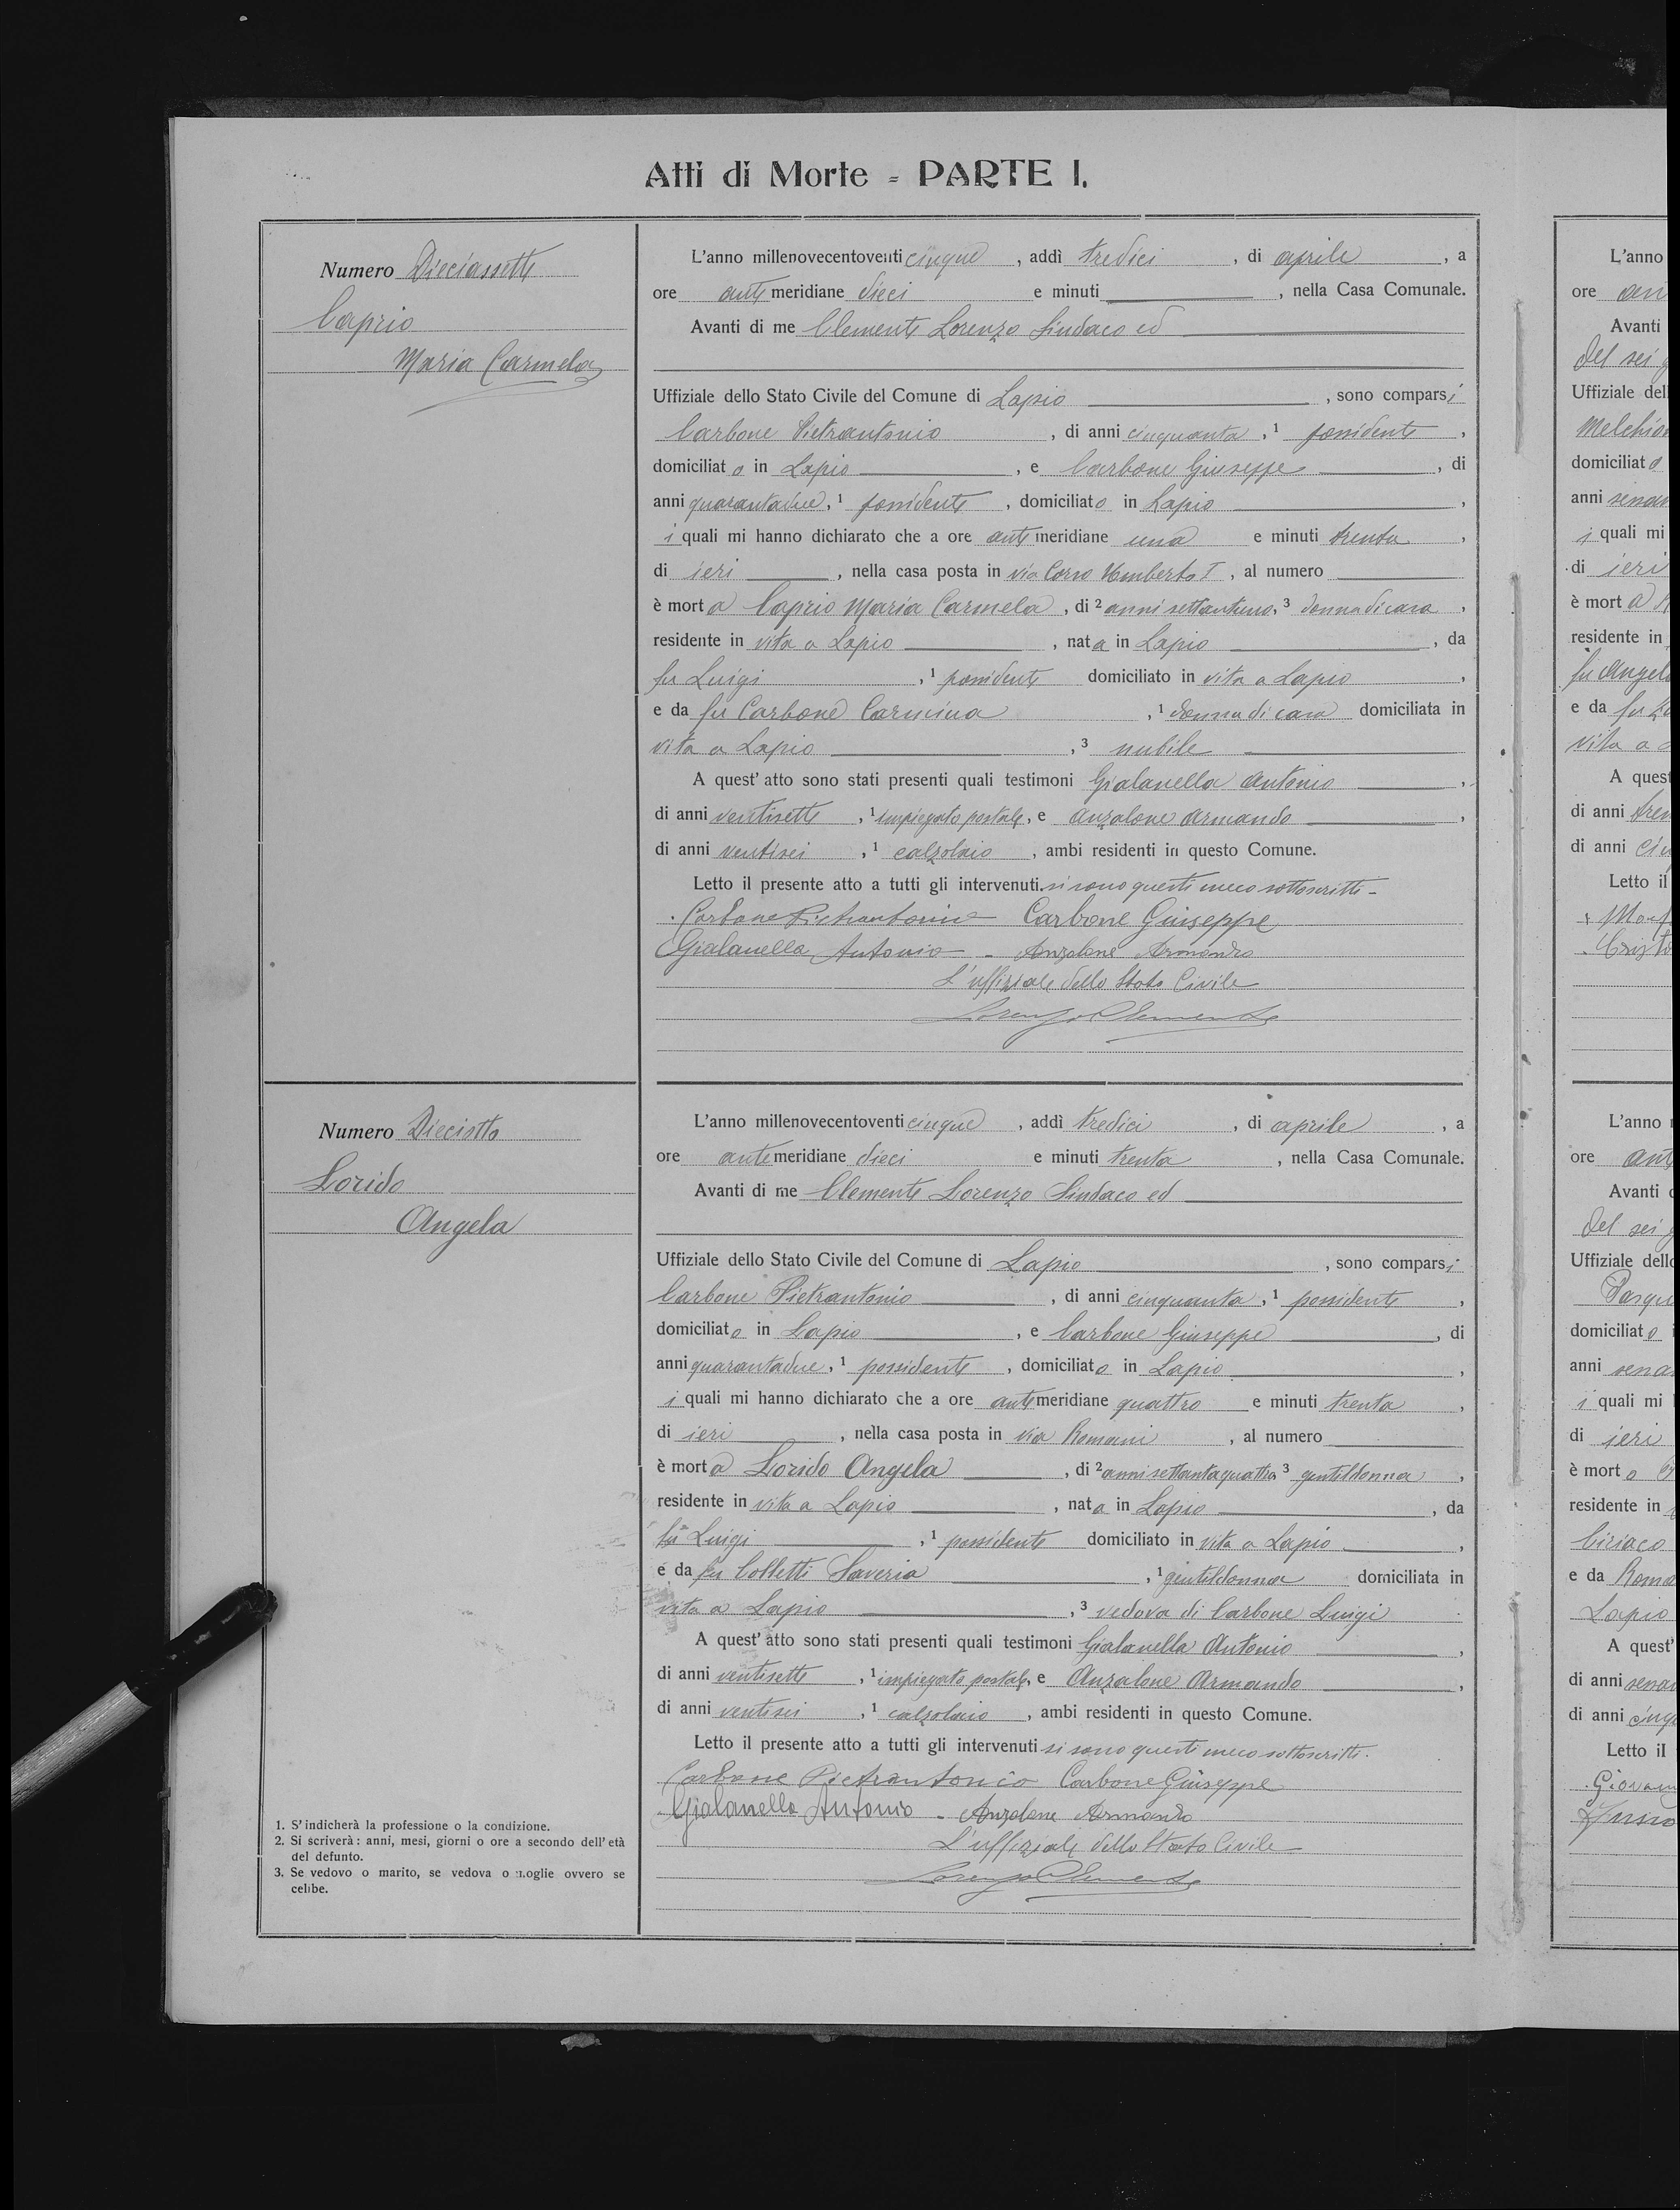 Atti di Morte = PARTE I.
Numero Dieciassette
Caprio
Maria Carmela
L'anno millenovecentoventi cinque , addì tredici , di aprile , a
ore antimeridiane dieci e minuti , nella Casa Comunale.
Avanti di me Clemente Lorenzo Sindaco ed
Uffiziale dello Stato Civile del Comune di Lapio , sono comparsi
Carbone Pietrantonio , di anni cinquanta , 1 possidente ,
domiciliato in Lapio , e Carbone Giuseppe , di
anni quarantadue, 1 possidente , domiciliato in Lapio ,
i quali mi hanno dichiarato che a ore antimeridiane una e minuti trenta ,
di ieri , nella casa posta in via Corso Umberto I , al numero
è morta Caprio Maria Carmela , di 2 anni settantuno, 3 donna di casa ,
residente in vita a Lapio , nata in Lapio , da
fu Luigi , 1 possidente domiciliato in vita a Lapio ,
e da fu Carbone Carmina , 1 donna di casa domiciliata in
vita a Lapio , 3 nubile
A quest' atto sono stati presenti quali testimoni Gialanella Antonio ,
di anni ventisette , 1 impiegato postale, e Anzalone Armando ,
di anni ventisei , 1 calzolaio , ambi residenti in questo Comune.
Letto il presente atto a tutti gli intervenuti si sono questi meco sottoscritti -
Carbone Pietrantonio Carbone Giuseppe
Gialanella Antonio - Anzalone Armando
L'uffiziale dello Stato Civile
Lorenzo Clemente
Numero Dieciotto
Lorido
Angela
L'anno millenovecentoventi cinque , addì tredici , di aprile , a
ore antemeridiane dieci e minuti trenta , nella Casa Comunale.
Avanti di me Clemente Lorenzo Sindaco ed
Uffiziale dello Stato Civile del Comune di Lapio , sono comparsi
Carbone Pietrantonio , di anni cinquanta , 1 possidente ,
domiciliato in Lapio , e Carbone Giuseppe , di
anni quarantadue, 1 possidente , domiciliato in Lapio ,
i quali mi hanno dichiarato che a ore antimeridiane quattro e minuti trenta ,
di ieri , nella casa posta in via Romani , al numero
è morta Lorido Angela , di 2 anni settantaquattro 3 gentildonna ,
residente in vita a Lapio , nata in Lapio , da
fu Luigi , 1 possidente domiciliato in vita a Lapio ,
e da fu Colletti Saveria , 1 gentildonna domiciliata in
vita a Lapio , 3 vedova di Carbone Luigi
A quest' atto sono stati presenti quali testimoni Gialanella Antonio ,
di anni ventisette , 1 impiegato postale, e Anzalone Armando ,
di anni ventisei , 1 calzolaio , ambi residenti in questo Comune.
Letto il presente atto a tutti gli intervenuti si sono questi meco sottoscritti.
Carbone Pietrantonio Carbone Giuseppe
Gialanella Antonio - Anzalone Armando
L'uffiziale dello Stato Civile
Lorenzo Clemente
1. S' indicherà la professione o la condizione.
2. Si scriverà : anni, mesi, giorni o ore a secondo dell' età
del defunto.
3. Se vedovo o marito, se vedova o moglie ovvero se
celibe.
L'anno
ore
Avanti
del sei
Uffiziale del
domiciliato
anni
i quali mi
di ieri
è morta
residente in
fu Angel
e da fu
vita a
A quest
di anni
di anni
Letto il
L'anno
ore
Avanti
del sei
Uffiziale dello
domiciliato
anni
i quali mi
di ieri
è morto
residente in
Ciriaco
e da
Lapio
A quest'
di anni
di anni
Letto il